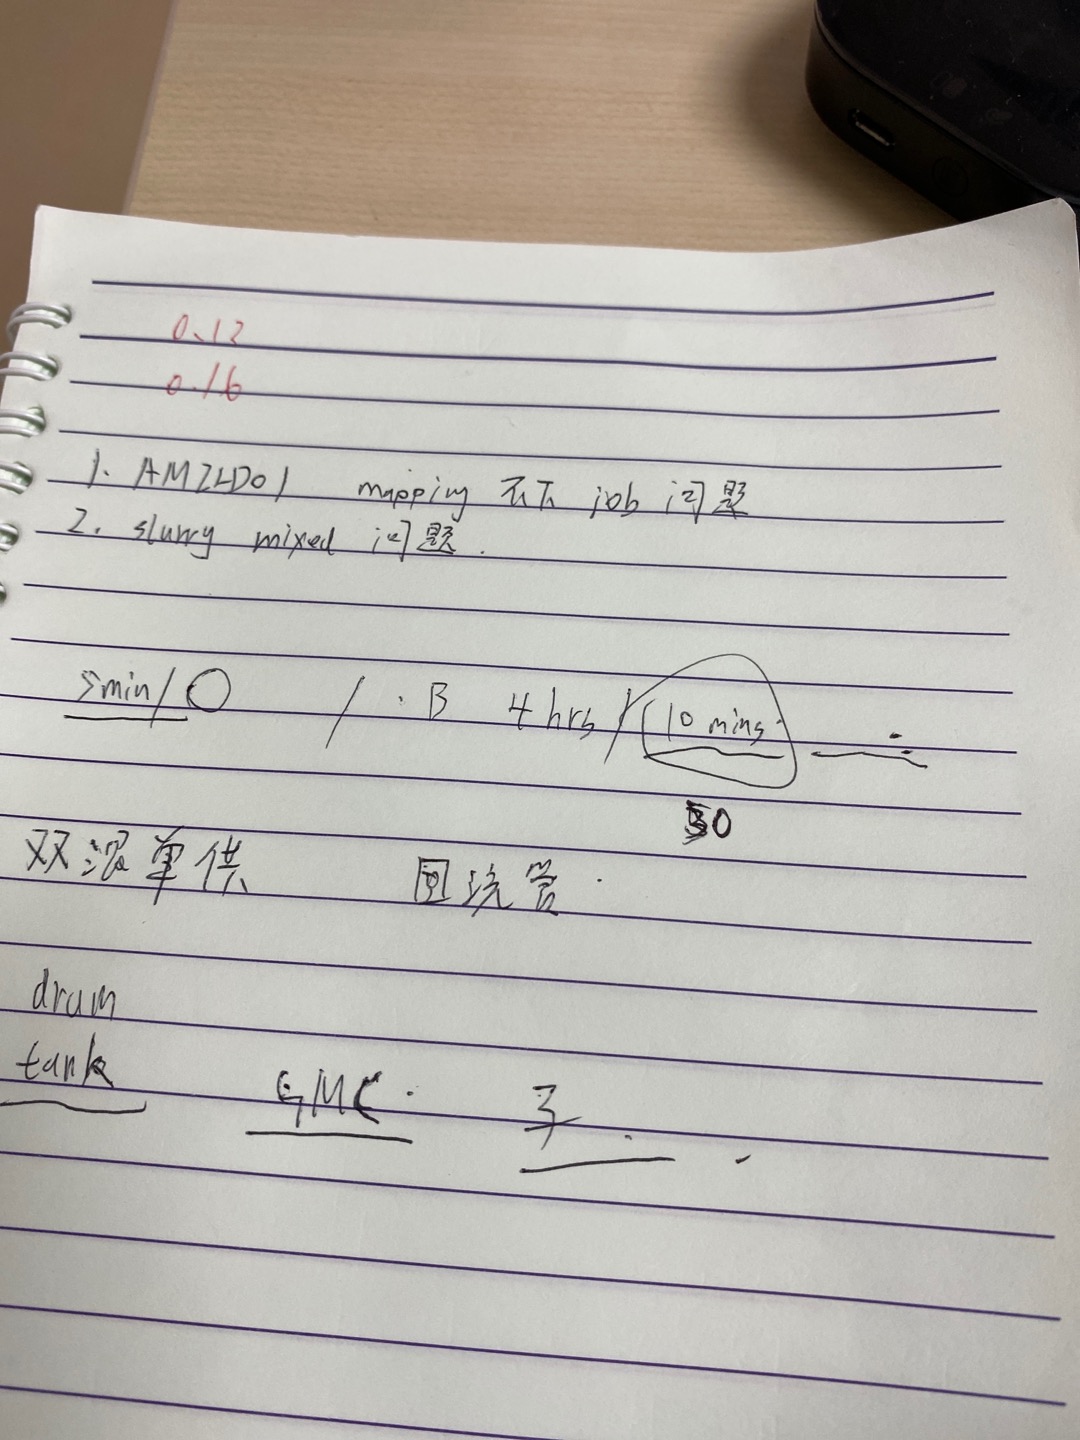 0.12
0.16
1. AMZLD01 mapping 不下 job 问题
2. slurry mixed 问题.
5min/ / . B 4 hrs / 10 mins
50
双混单供 回流管
drum
tank
GMC. 子